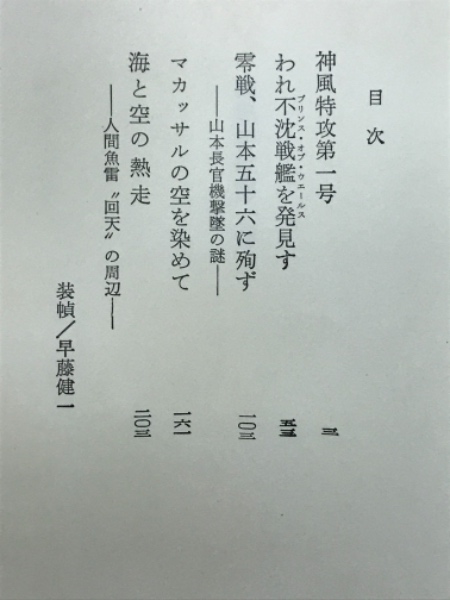 目次
神風特攻第一号 三
われ不沈戦艦を発見す 五三
プリンス・オブ・ウエールス
零戦、山本五十六に殉ず 一〇三
――山本長官機撃墜の謎――
マカッサルの空を染めて 一六一
海と空の熱走 二〇三
――人間魚雷〝回天〟の周辺――
装幀／早藤健一